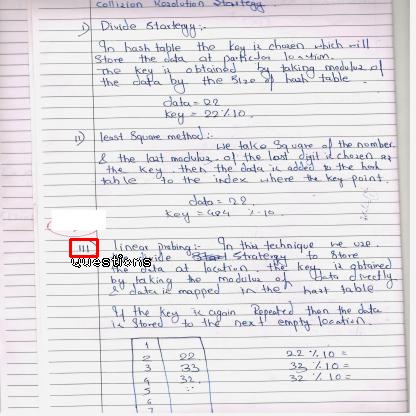 Collizion Resolution Startegy
i) Divide Startegy:-
In hash table the key is chosen which will
store the data at particular location.
The key is obtained by taking modulus of
the data by the size of hash table.
data = 22
key = 22 % 10.
ii) least Square method:-
we take Square of the number
& the last modulus of the last digit is chosen as
the key. then the data is added to the hash
table to the index where the key point.
data = 22.
key = 484 % 10.
III linear probing:- In this technique we use
Questions
divide Startegy to store
the data at location the key is obtained
by taking the modulus of data directly
& data is mapped in the hash table
If the key is again Repeated then the data
is stored to the next empty location.
1
2 22 22 % 10 =
3 33 33 % 10 =
4 32. 32 % 10 =
5
6
7